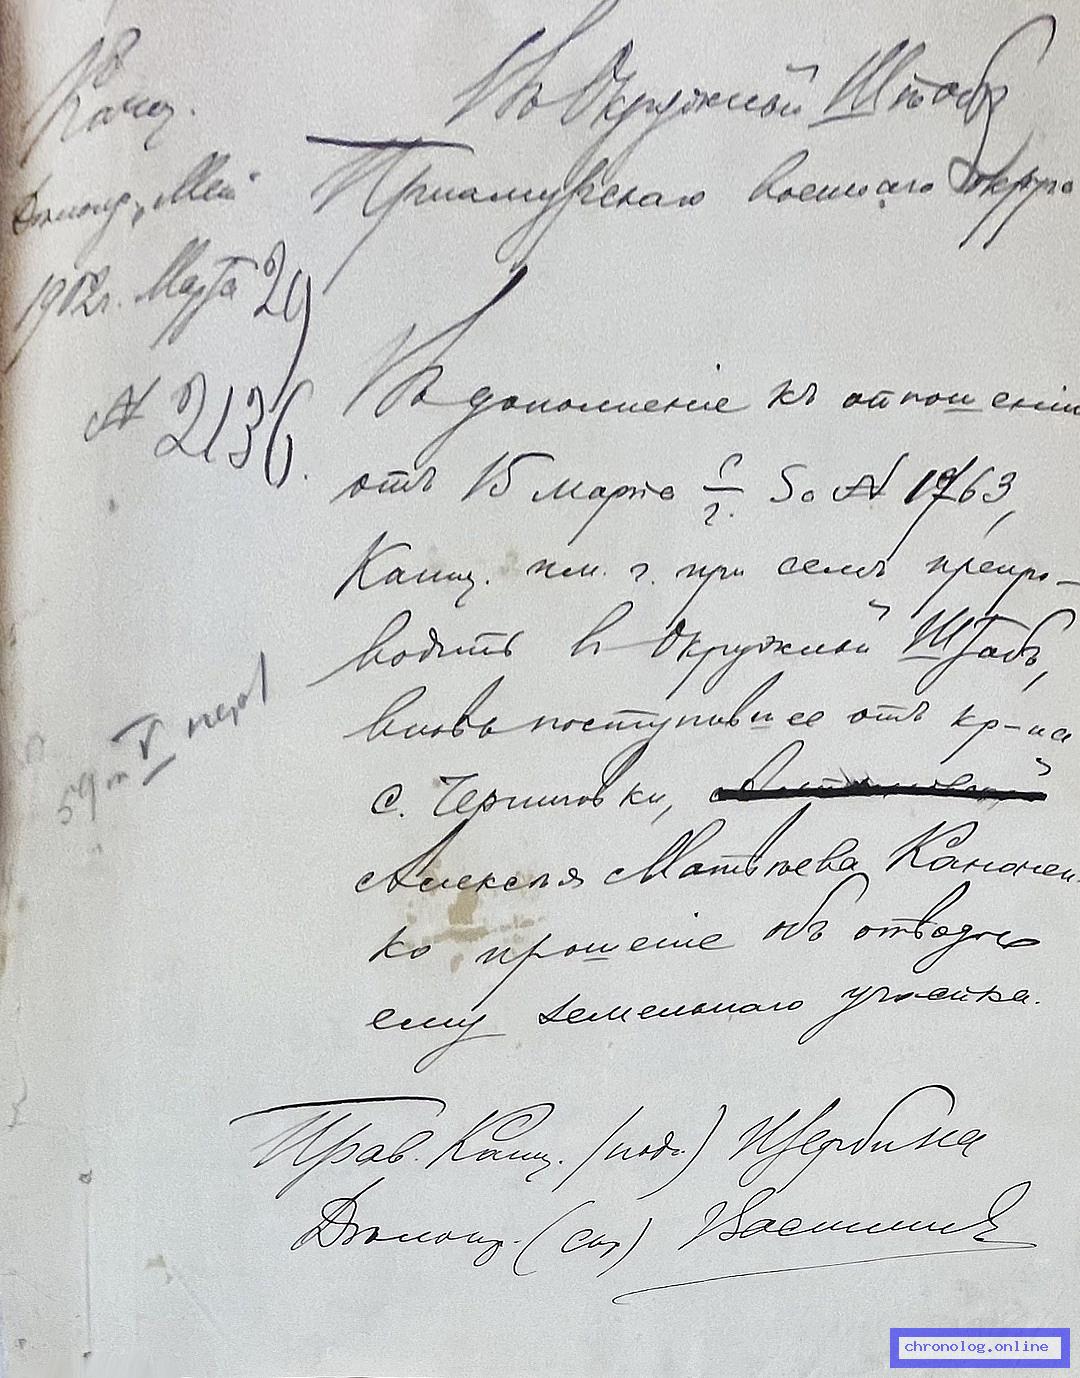 Канц.
1902 г. Марта 20
№ 2136.
Въ Окружной Штабъ
Приамурскаго военнаго округа
Въ дополненіе къ отношенію
отъ 15 марта с/г. за № 1763,
Канц. при семъ препро-
водитъ въ Окружной Штабъ,
вновь поступившее отъ кр-на
с. Черниговки,
Алексѣя Матвѣева Канонен-
ко прошеніе объ отводѣ
ему земельнаго участка.
Прав. Канц. (подп.) Щербина
Дѣлопр. (ск.)
chronolog.online